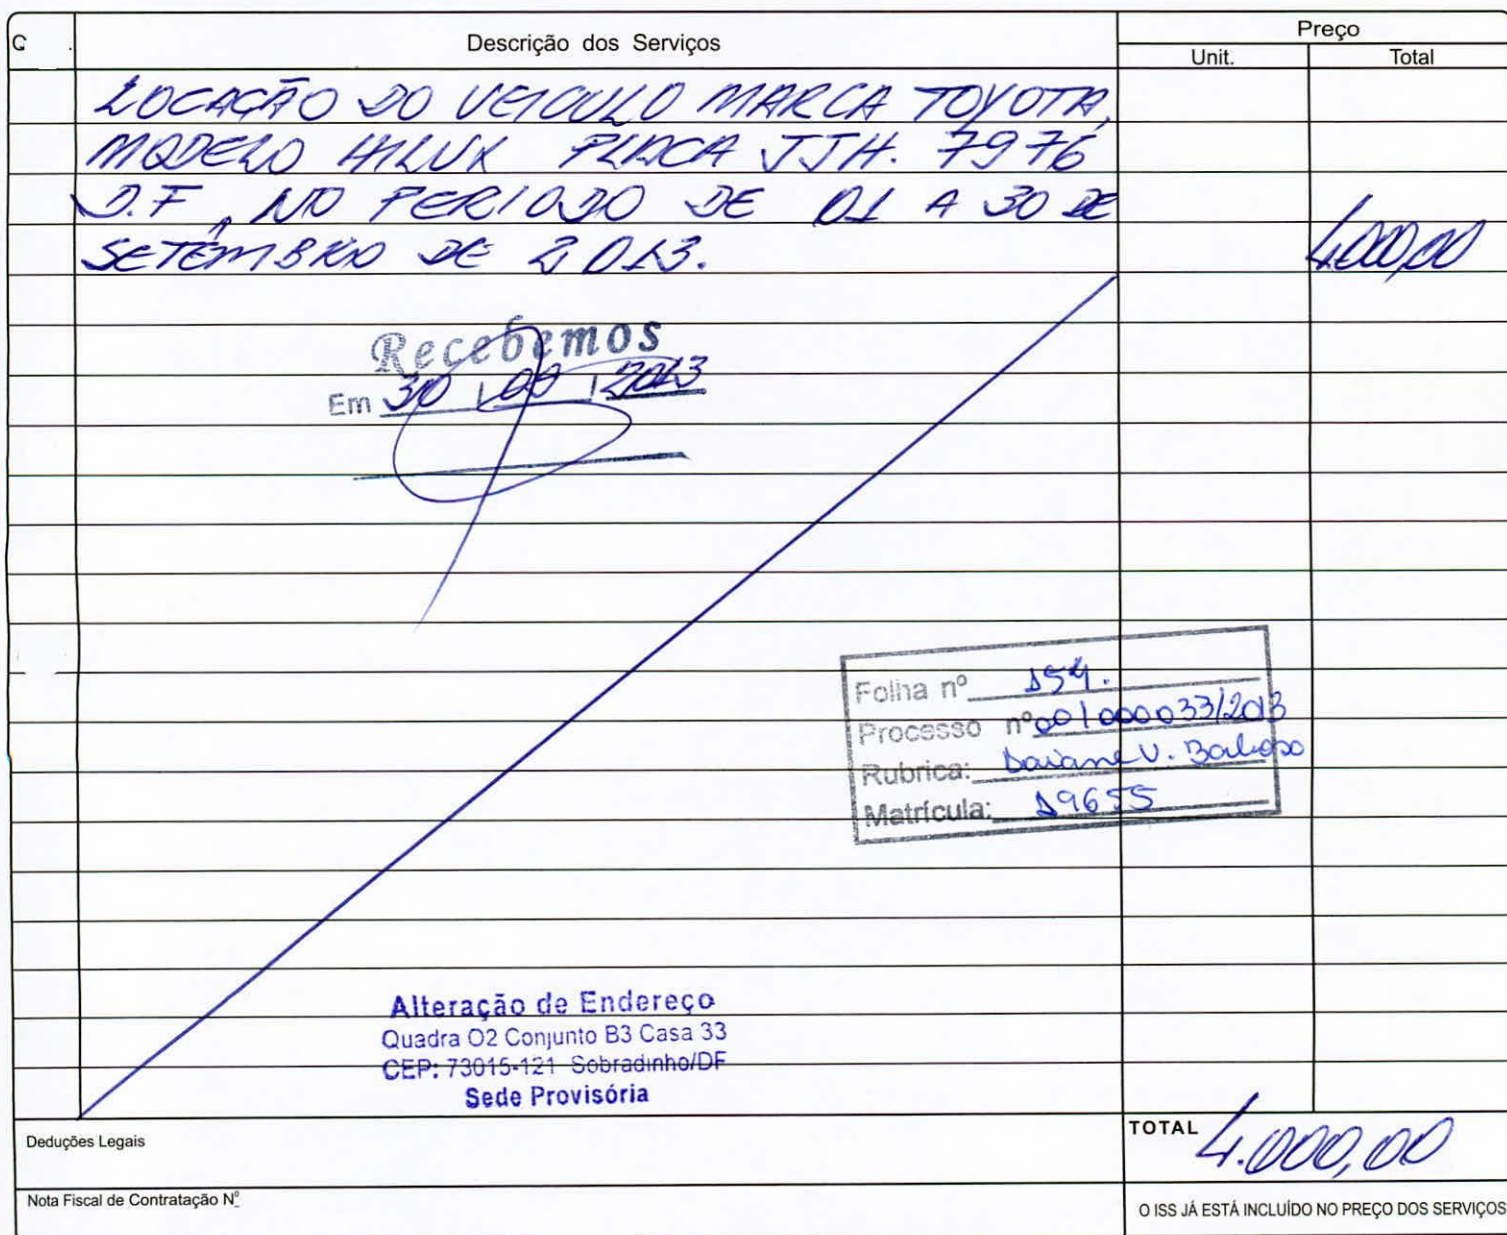 Descrição dos Serviços
Preço
Unit.
Total
LOCAÇÃO DO VEICULO MARCA TOYOTA,
MODELO HILUX PLACA JJH. 7976
D.F, NO PERIODO DE 01 A 30 DE
SETEMBRO DE 2013.
4.000,00
Recebemos
Em 30 / 09 / 2013
Folha nº 154.
Processo nº 001000033/2013
Rubrica: Daiane V. Barboso
Matrícula: 19655
Alteração de Endereço
Quadra O2 Conjunto B3 Casa 33
CEP: 73015-121 Sobradinho/DF
Sede Provisória
Deduções Legais
TOTAL 4.000,00
Nota Fiscal de Contratação Nº
O ISS JÁ ESTÁ INCLUÍDO NO PREÇO DOS SERVIÇOS